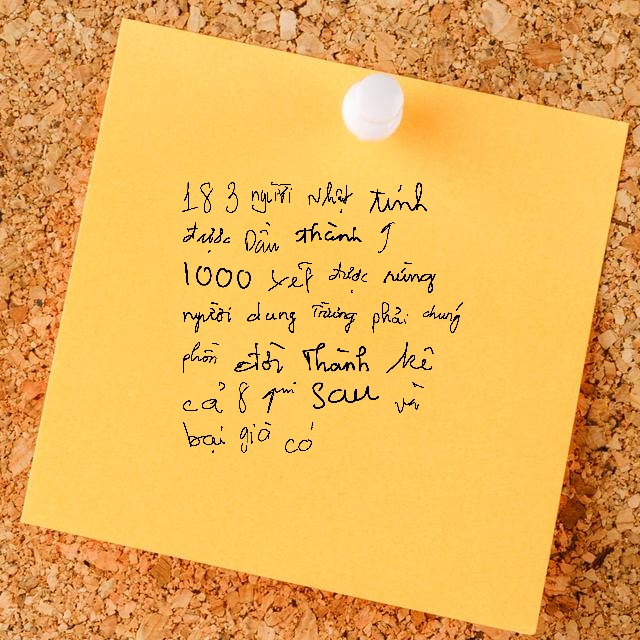 18 3 người Nhật tính
được Dân thành 9
1000 xét được năng
người dung Trường phải chung
phồn đời Thành kê
cả 8 Sau và
bại giã có